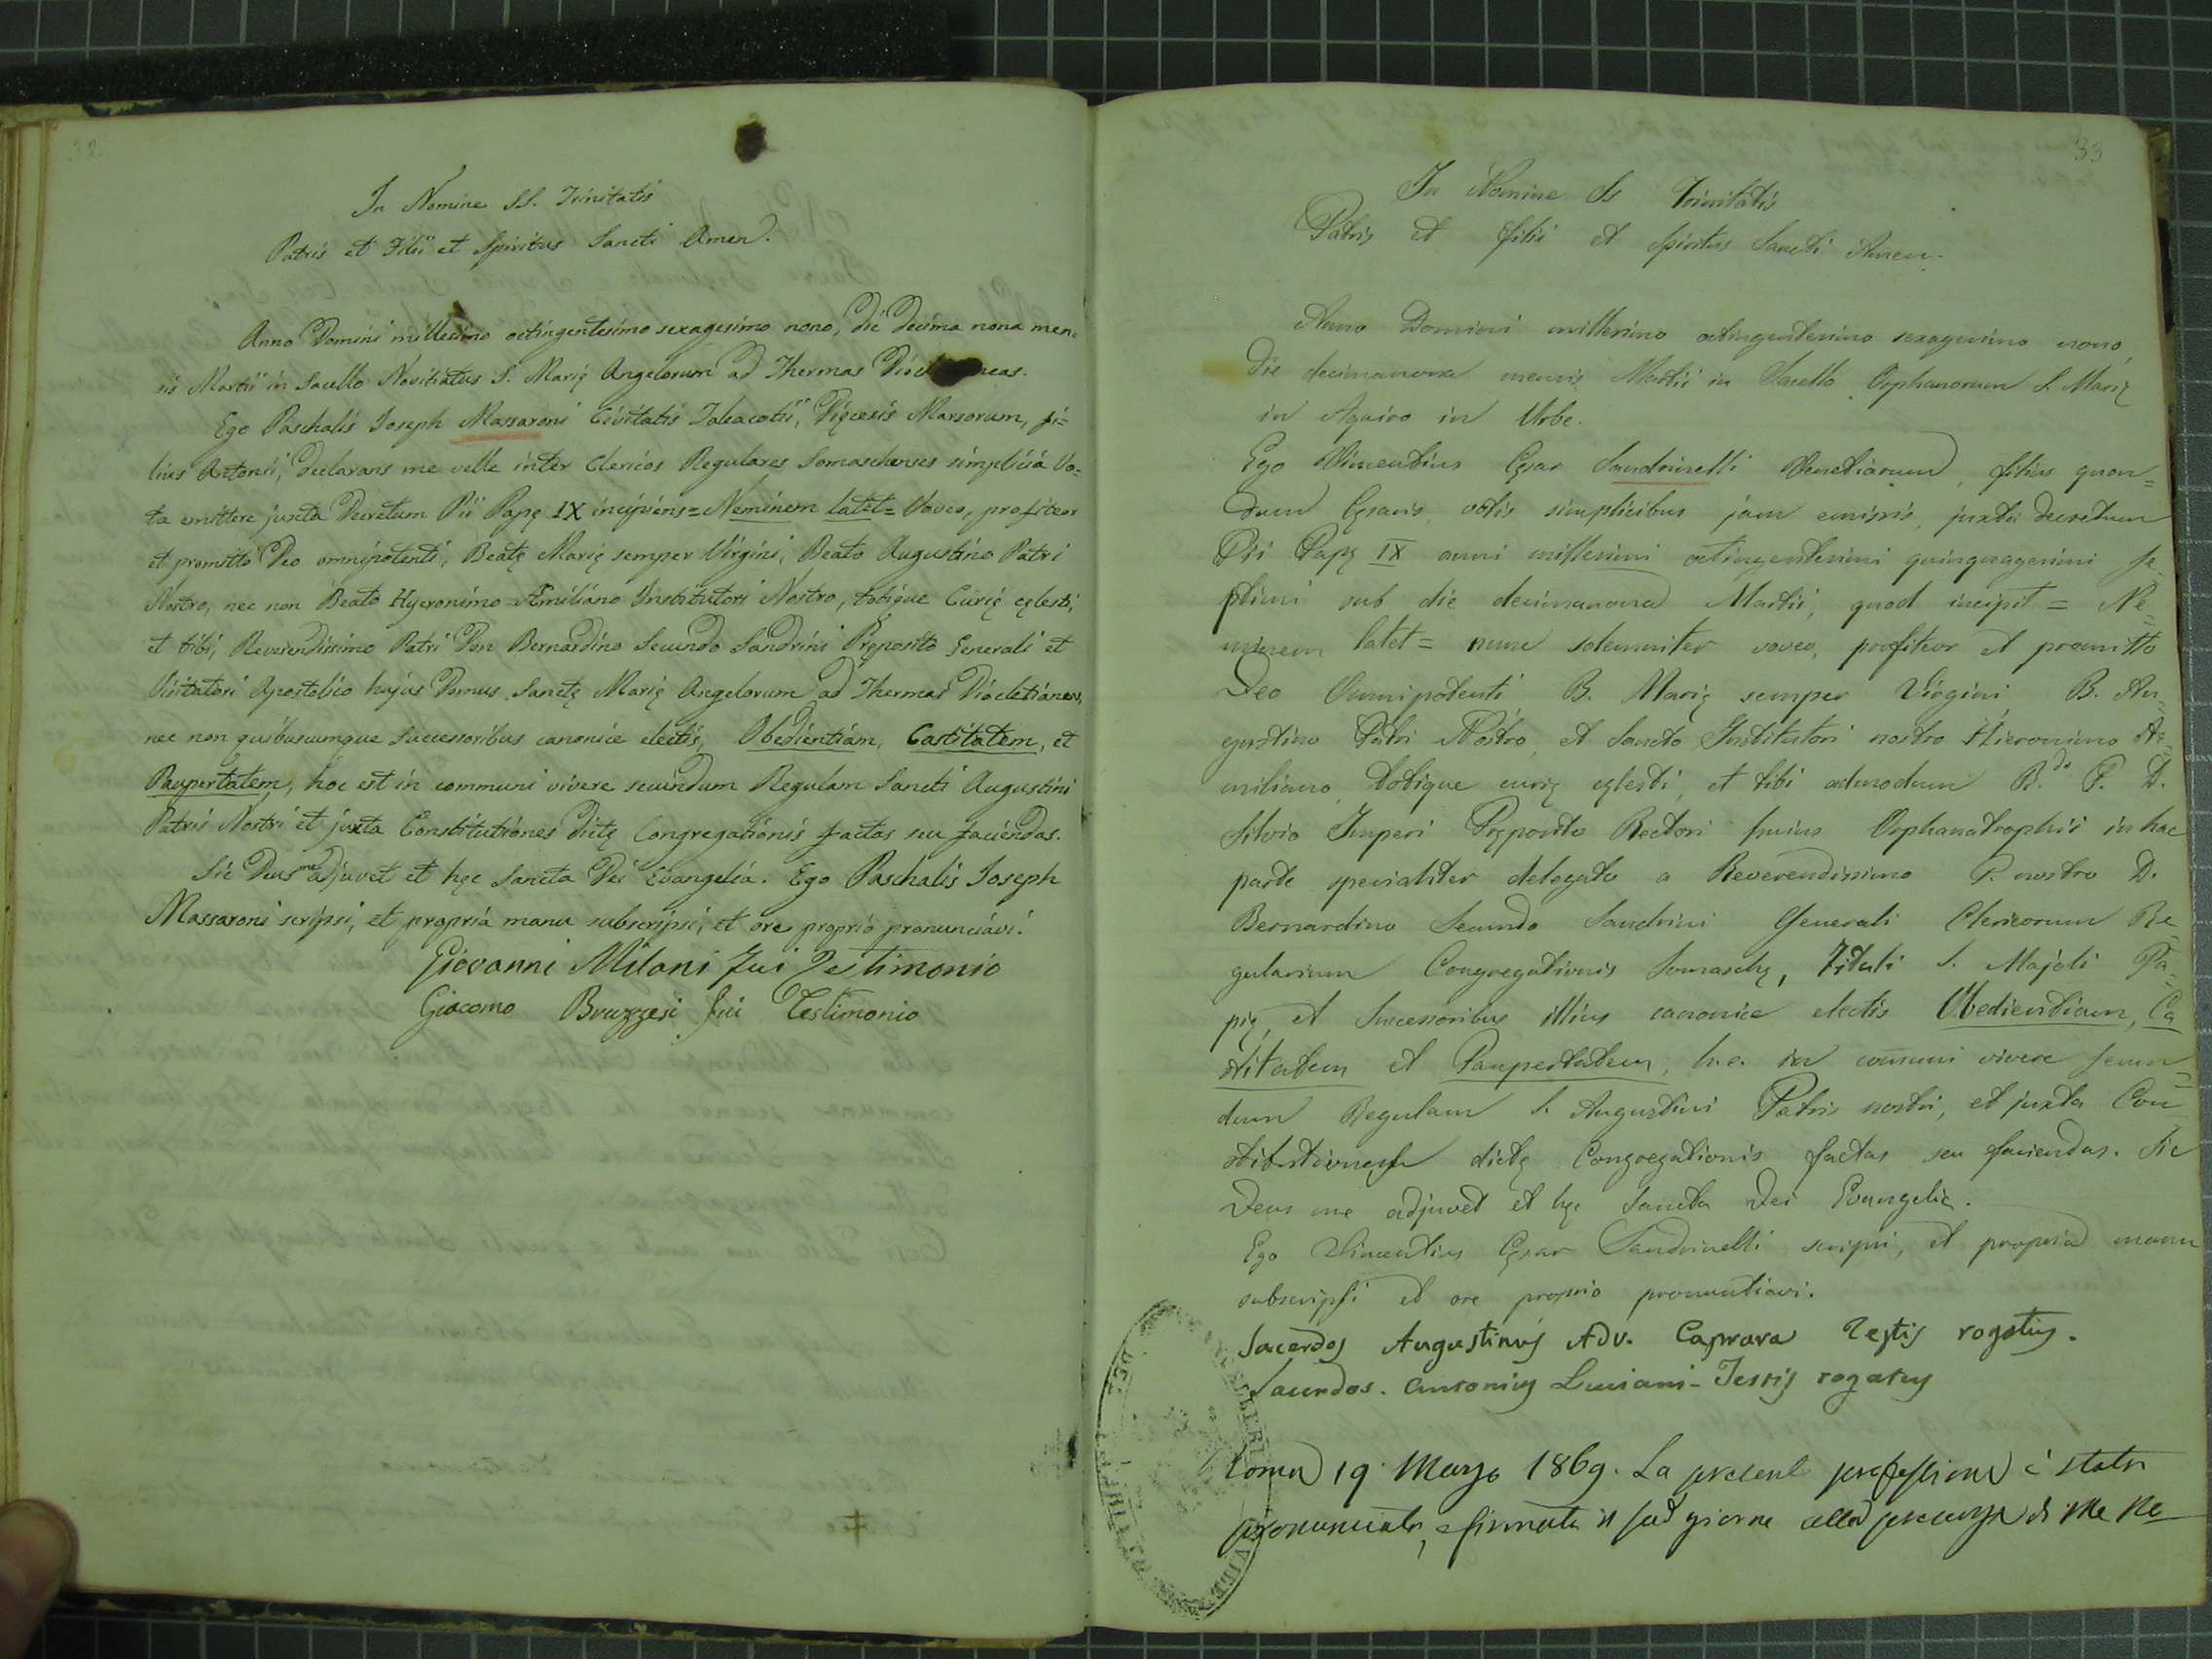 In Nomine SS. Trinitatis
Patris et Filii et Spiritus Sancti Amen.
Anno Domini millesimo octingentesimo sexagesimo nono, die decima nona men=
sis Martii in Sacello Novitiatus S. Marię Angelorum ad Thermas
Ego Paschalis Joseph Massaroni Civitatis Taleacotii, Dięcesis Marsorum, fi=
lius Antonii, declarans me velle inter Clericos Regulares Somaschenses simplicia Vo=
ta emittere juxta Decretum Pii Papę IX incipiens = Neminem latet = Voveo, profiteor
et promitto Deo omnipotenti, Beatę Marię semper Virgini, Beato Augustino Patri
Nostro, nec non Beato Hyeronimo Æmiliano Institutori Nostro, totique Curię cęlesti,
et tibi, Reverendissimo Patri Don Bernardino Secundo Sandrini Pręposito Generali et
Visitatori Apostolico hujus Domus Sanctę Marię Angelorum ad Thermas Diocletianeas,
nec non quibuscumque successoribus canonice electis, Obedientiam, Castitatem, et
Paupertatem, hoc est in communi vivere secundum Regulam Sancti Augustini
Patris Nostri et juxta Constitutiones dictę Congregationis factas seu faciendas.
Sic Deus me adjuvet et hęc Sancta Dei Evangelia. Ego Paschalis Joseph
Massaroni scripsi, et propria manu subscripsi, et ore proprio pronunciavi.
Giovanni Milani fui Testimonio
Giacomo Bruzzesi fui Testimonio
33
In Nomine Ss Trinitatis
Patris et filii et Spiritus Sancti Amen.
Anno Domini millesimo octingentesimo sexagesimo nono,
die decimanona mensis Martii in Sacello Orphanorum S. Marię
in Aquiro in Urbe.
Ego Vincentius Cęsar Sandrinelli Venetiarum, filius quon=
dam Cęsaris, votis simplicibus jam emissis, juxta decretum
Pii Papę IX anni millesimi octingentesimi quinquagesimi se=
ptimi sub die decimanona Martii, quod incipit = Ne=
minem latet = nunc solemniter voveo, profiteor et promitto
Deo Omnipotenti B. Marię semper Virgini B. Au=
gustino Patri Nostro, et Sancto Institutori nostro Hieronimo Æ=
miliano, totique curię cęlesti, et tibi admodum R.do P. D.
Silvio Imperi Pręposito Rectori hujus Orphanatrophii in hac
parte specialiter delegato a Reverendissimo P. nostro D.
Bernardino Secundo Sandrini Generali Clericorum Re=
gularium Congregationis Somaschę, Tituli S. Majoli Pa=
pię, et Successoribus illius canonice electis Obedientiam, Ca
stitatem et Paupertatem, h. e. in communi vivere secun=
dum Regulam S. Augustini Patris nostri, et juxta Con
stitutiones dictę Congregationis factas seu faciendas. Sic
Deus me adjuvet et hęc Sancta Dei Evangelia.
Ego Vincentius Cęsar Sandrinelli scripsi, et propria manu
subscripsi et ore proprio pronuntiavi.
Sacerdos Augustinus Adv. Caprara Testis rogatus.
Sacerdos. Antonius Luciani - Testis rogatus
Roma 19 Marzo 1869. La presente professione è stata
pronunciata, e firmata il sud giorno alla presenza di Me No